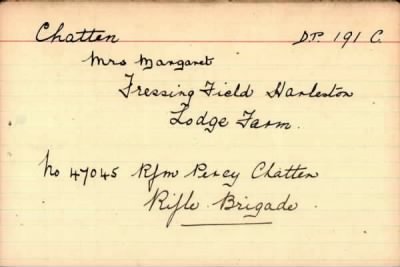 Chatten DP. 191 C.
Mrs Margaret
Fressing Field Harleston
Lodge Farm.
No 47045 Rfm Percy Chatten
Rifle Brigade.